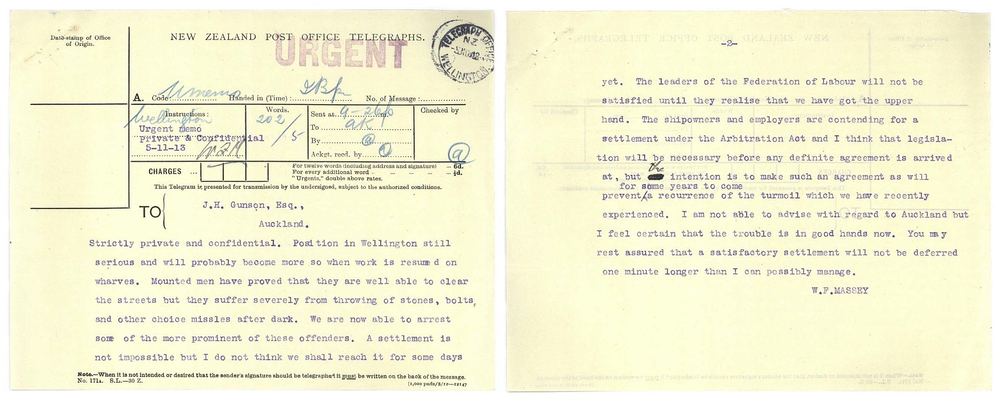 Date-stamp of Office
of Origin.
NEW ZEALAND POST OFFICE TELEGRAPHS.
URGENT
TELEGRAPH OFFICE
N Z
WELLINGTON
A. Code: Handed in (Time): No. of Message:
Instructions:
Wellington
Urgent memo
Private & Confidential
5-11-13
Words.
202
/5
Sent at
To AK
By
Ackgt. recd. by
Checked by
CHARGES ...
For twelve words (including address and signature) - 6d.
For every additional word - - - ½d.
"Urgents," double above rates.
This Telegram is presented for transmission by the undersigned, subject to the authorized conditions.
TO
J.H. Gunson, Esq.,
Auckland.
Strictly private and confidential. Position in Wellington still
serious and will probably become more so when work is resumed on
wharves. Mounted men have proved that they are well able to clear
the streets but they suffer severely from throwing of stones, bolts,
and other choice missles after dark. We are now able to arrest
some of the more prominent of these offenders. A settlement is
not impossible but I do not think we shall reach it for some days
Note.—When it is not intended or desired that the sender's signature should be telegraphed it must be written on the back of the message.
No. 171a. S.L.—30 Z.
-2-
yet. The leaders of the Federation of Labour will not be
satisfied until they realise that we have got the upper
hand. The shipowners and employers are contending for a
settlement under the Arbitration Act and I think that legisla-
tion will be necessary before any definite agreement is arrived
at, but the intention is to make such an agreement as will
for some years to come
prevent/a recurrence of the turmoil which we have recently
experienced. I am not able to advise with regard to Auckland but
I feel certain that the trouble is in good hands now. You may
rest assured that a satisfactory settlement will not be deferred
one minute longer than I can possibly manage.
W.F.MASSEY